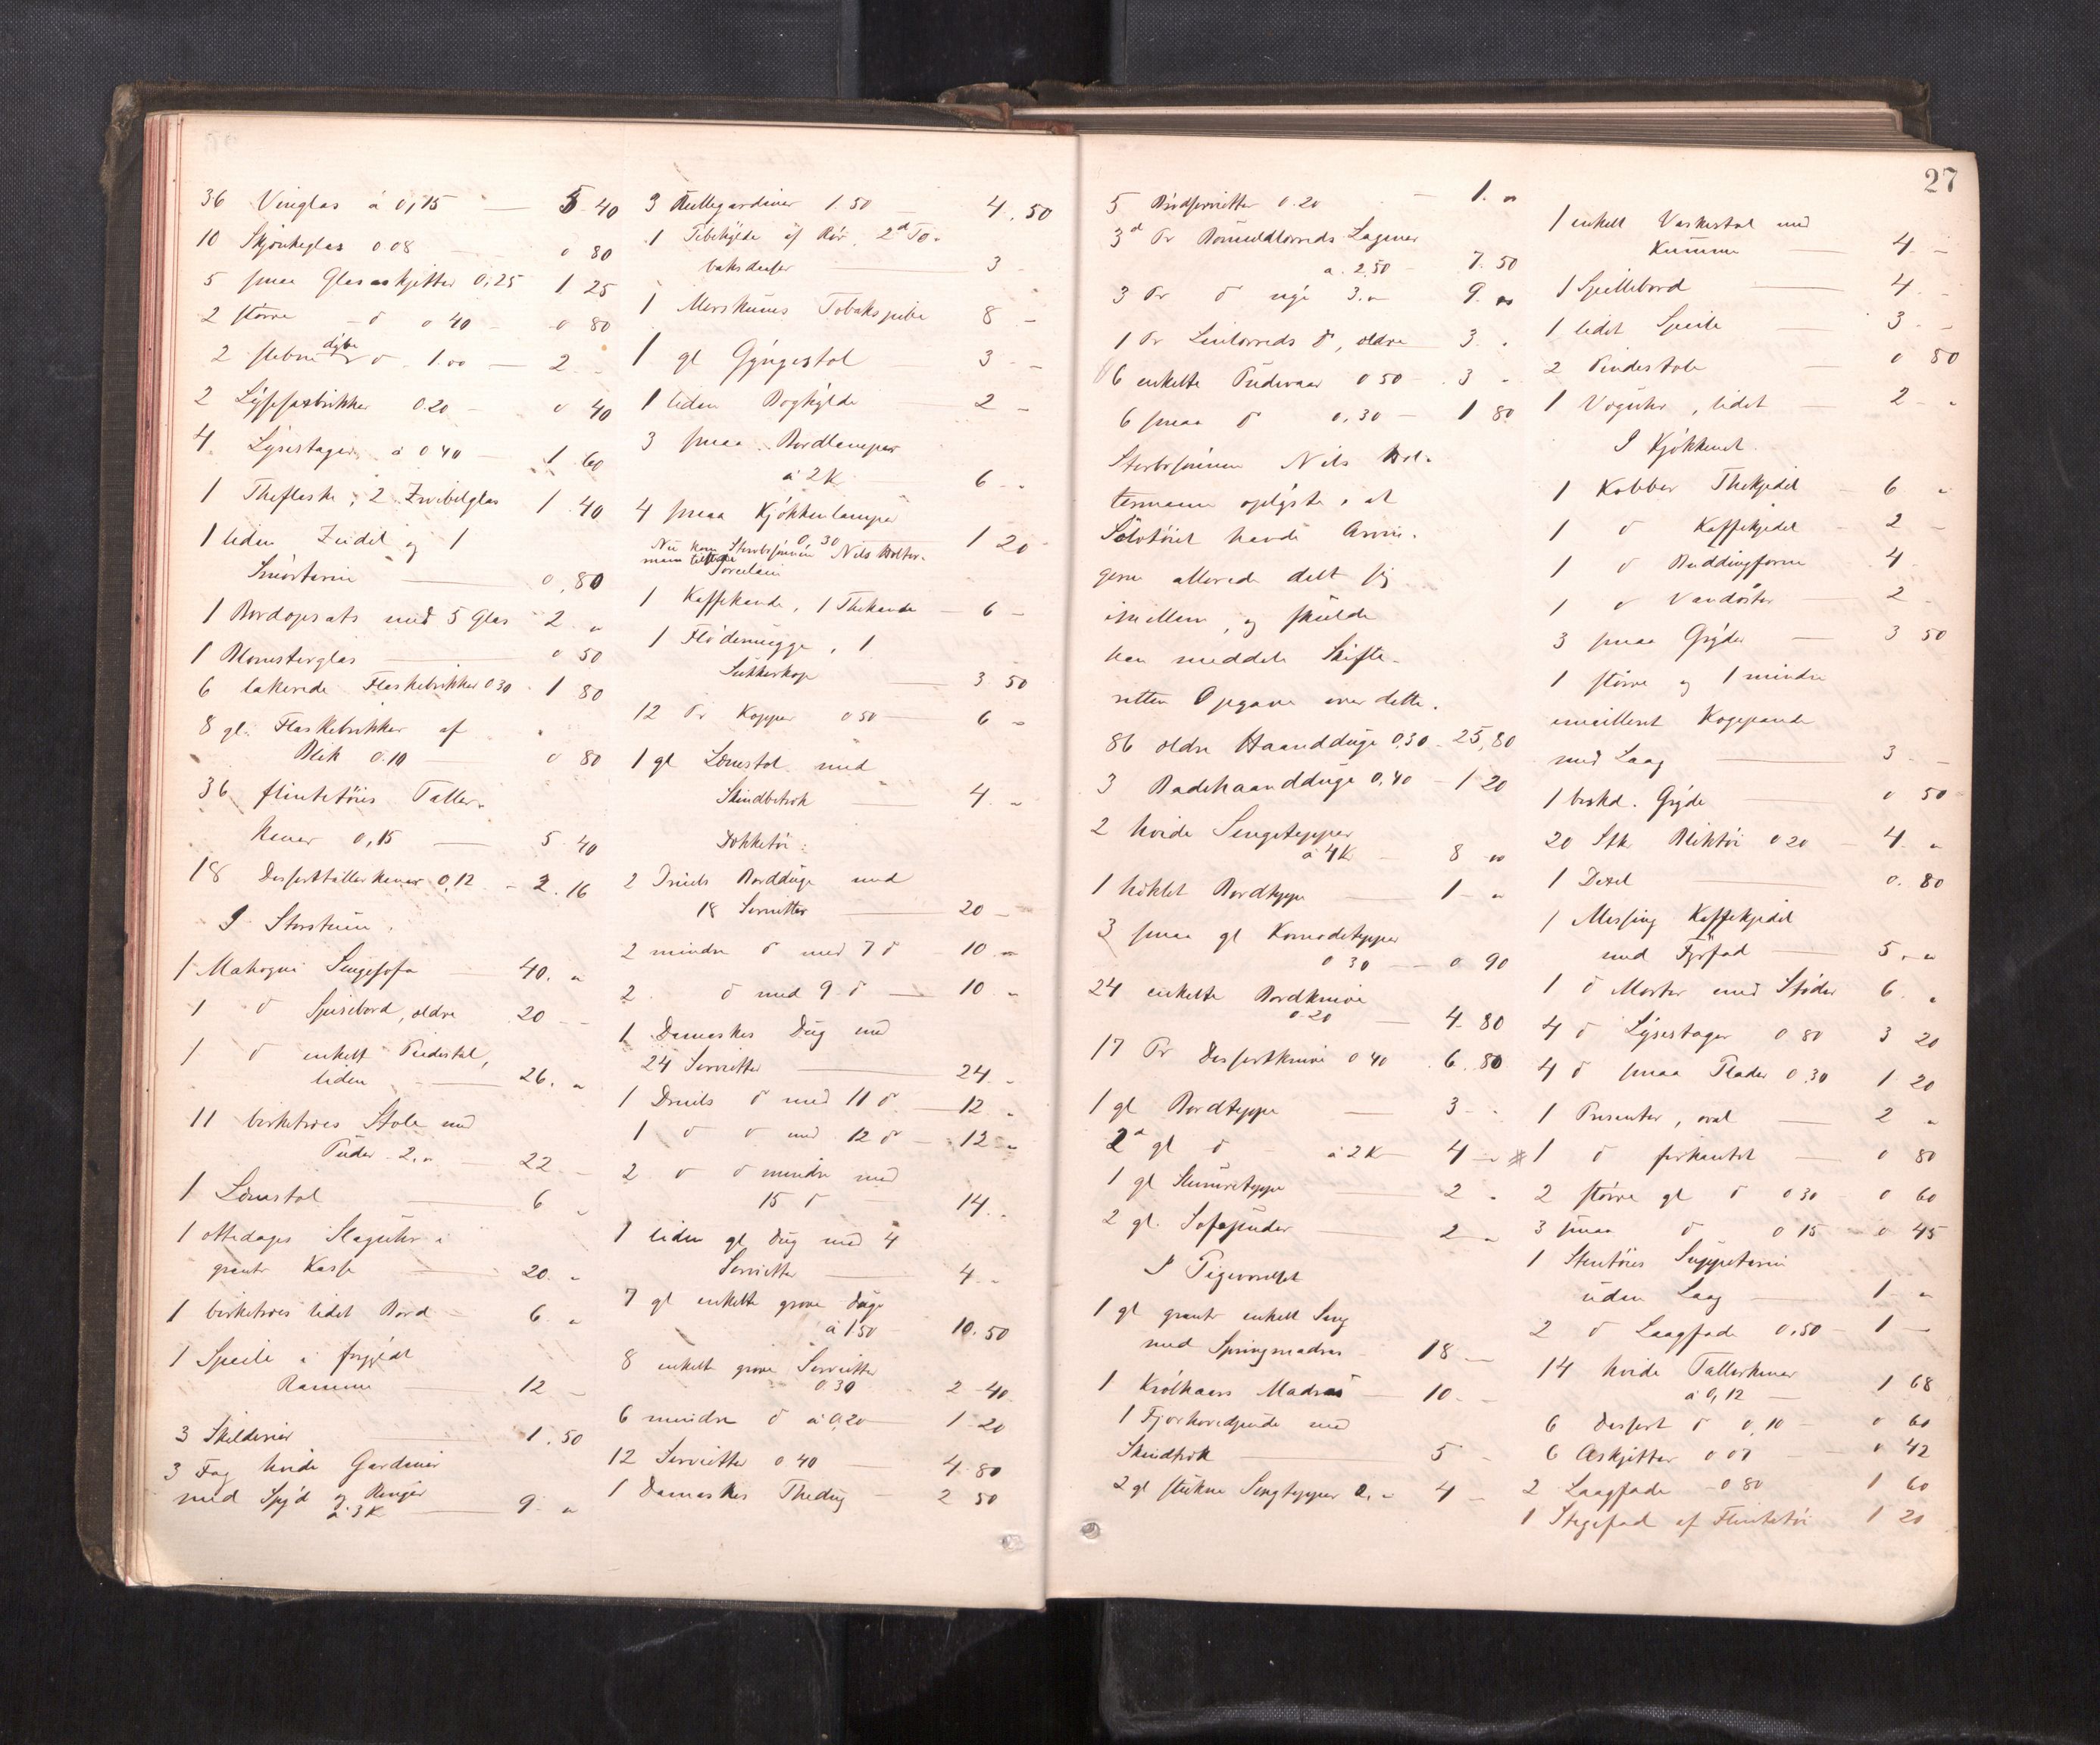 36 Vinglas á 0,15 — 5 40
10 Skjænkeglas 0 08 — 0 80
5 smaa Glasaskjetter 0,25 1. 25
2 større — d 0 40 — 0 80
2 slebne dybe d 1.00 — 2 -
2 Lysesaxbrikker 0.20 — 0 40
4 Lysestager á 0 40 — 1. 60
1 Theflaske, 2 Zwibelglas 1 40
1 liden Zeidel og 1
Smørterin — 0,80
1 Bordopsats med 5 Glas 2 "
1 Blomsterglas — 0 50
6 lakerede Flaskebrikker 0 30 - 1 80
8 gl. Flaskebrikker af
Blik 0.10 — 0 80
36 flintetøies Taller-
kener 0,15 — 5 40
18 Desserttallerkener 0,12 - 2.16
I Storstuen.
1 Mahogni Sengesofa — 40. "
1 d Spisebord, ældre 20 -
1 d enkelt Piedestal,
liden — 26. "
11 birketræes Stole med
Puder 2." — 22 -
1 Lænestol — 6 "
1 ottedages Slaguhr i
grantr Kasse — 20. "
1 birketræes lidet Bord — 6. "
1 Speile i forgyldt
Ramme — 12 -
3 Skilderier — 1.50
3 Fag hvide Gardiner
med Spyd og Ringer
á 3 K — 9. "
3 Rullegardiner 1.50 — 4.50
1 Pibehylde af Rør, 2 d To-
baksdaaser — 3 -
1 Merskums Tobakspibe 8 -
1 gl Gyngestol 3 -
1 liden Boghylde — 2 -
3 smaa Bordlamper
á 2 K 6 - -
4 smaa Kjøkkenlamper
0,30 — 1 20
Nu kom Sterbsønnen Nils Wolter-
mann tilstede
Porcelain
1 Kaffekande, 1 Thekande — 6 -
1 Flødemugge, 1
Sukkerkop — 3 50
12 Pr Kopper 0 50 — 6 -
1 gl Lænestol med
Skindbetræk — 4 -
Dækketøi:
2 Dreiels Bordduge med
18 Servietter — 20 -
2 mindre d med 7 d — 10 "
2 d med 9 d — 10 "
1 Damaskes Dug med
24 Servietter — 24 "
1 Dreiels d med 11 d — 12 "
1 d d med 12 d — 12 "
2 d d mindre med
15 d 14 "
1 liden gl Dug med 4
Servietter — 4 "
7 gl enkelte grove Duge
á 1 50 10.50
8 enkelt grove Servietter
0.30 2 40
6 mindre d á 0,20 — 1 20
12 Servietter 0 40 — 4.80
1 Damaskes Thedug — 2 50
27
5 Brødservietter 0.20 — 1. "
3 d Pr Bomuldlærreds Lagener
a. 2.50 — 7.50
3 Pr d nye 3." 9. "
1 Pr Linlærreds d, ældre 3. "
6 enkelte Pudevaar 0 50 — 3 "
6 smaa d 0,30 — 1 80
Sterbsønnen Nils Wol-
termann oplyste, at
Sølvtøiet havde Arvin-
gerne allerede delt sig
imellem, og skulde
han meddele Skifte-
retten Opgave over dette.
86 ældre Haandduge 0,30 - 25,80
3 Badehaandduge 0,40 — 1 20
2 hvide Sengetepper
á 4 K — 8 "
1 hæklet Bordteppe — 1 - "
3 smaa gl Komodetepper
0 30 — 0 90
24 enkelte Bordknive
0 20 — 4 80
17 Pr Dessertknive 0 40 . 6. 80
1 gl Bordteppe — 3 - -
2 d gl d á 2 K 4 - "
1 gl Skureteppe — 2 "
2 gl. Sofapuder — 2 "
I Pigeværelset
1 gl grantr enkelt Seng
med Springmadras — 18 —
1 Krølhaars Madras — 10 -
1 Fjærhovedpude med
Skindtræk — 5 -
2 gl stukne Sengtepper 2." 4 -
1 enkelt Vaskestol med
Kumme — 4 -
1 Spillebord — 4 -
1 lidet Speile — 3 -
2 Pindestole — 0 80
1 Væguhr, lidet — 2 - "
I Kjøkkenet.
1 Kobber Thekjedel — 6 "
1 d Kaffekjedel — 2 -
1 d Buddingform 4 -
1 d Vandøster — 2 -
3 smaa Gryder — 3 50
1 større og 1 mindre
emailleret Kogepande
med Laag — 3 -
1 beskd. Gryde — 0 50
20 Stk Bliktøi 0 20 — 4 "
1 Dexel — 0. 80
1 Messing Kaffekjedel
med Fyrfad — 5. "
1 d Morter med Støder 6. "
4 d Lysestager 0 80 3 20
4 d smaa Plader 0.30 1 20
1 Presenter, oval — 2 "
# 1 d firkantet — 0 80
2 større gl d 0 30 — 0 60
3 smaa d 0 15 — 0 45
1 Stentøies Suppeterin
uden Laag — 1 - "
2 d Laagfade 0,50 — 1 -
14 hvide Tallerkener
á 0,12 — 1 68
6 Dessert d 0,10 — 0 60
6 Askjetter 0 07 — 0 42
2 Laagfade 0 80 1 60
1 Stegefad af Flintetøi 1 20